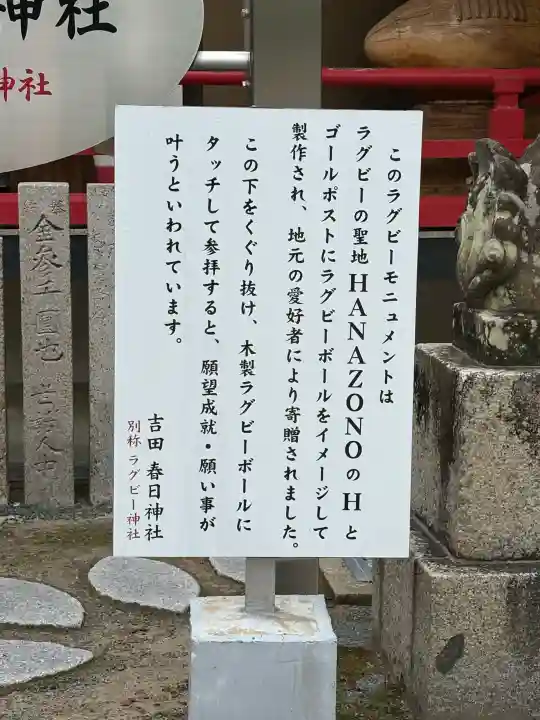 神社
神社
このラグビーモニュメントは
ラグビーの聖地HANAZONOのHと
ゴールポストにラグビーボールをイメージして
製作され、地元の愛好者により寄贈されました。
この下をくぐり抜け、木製ラグビーボールに
タッチして参拝すると、願望成就・願い事が
叶うといわれています。
吉田 春日神社
別称 ラグビー神社
金参工圓也